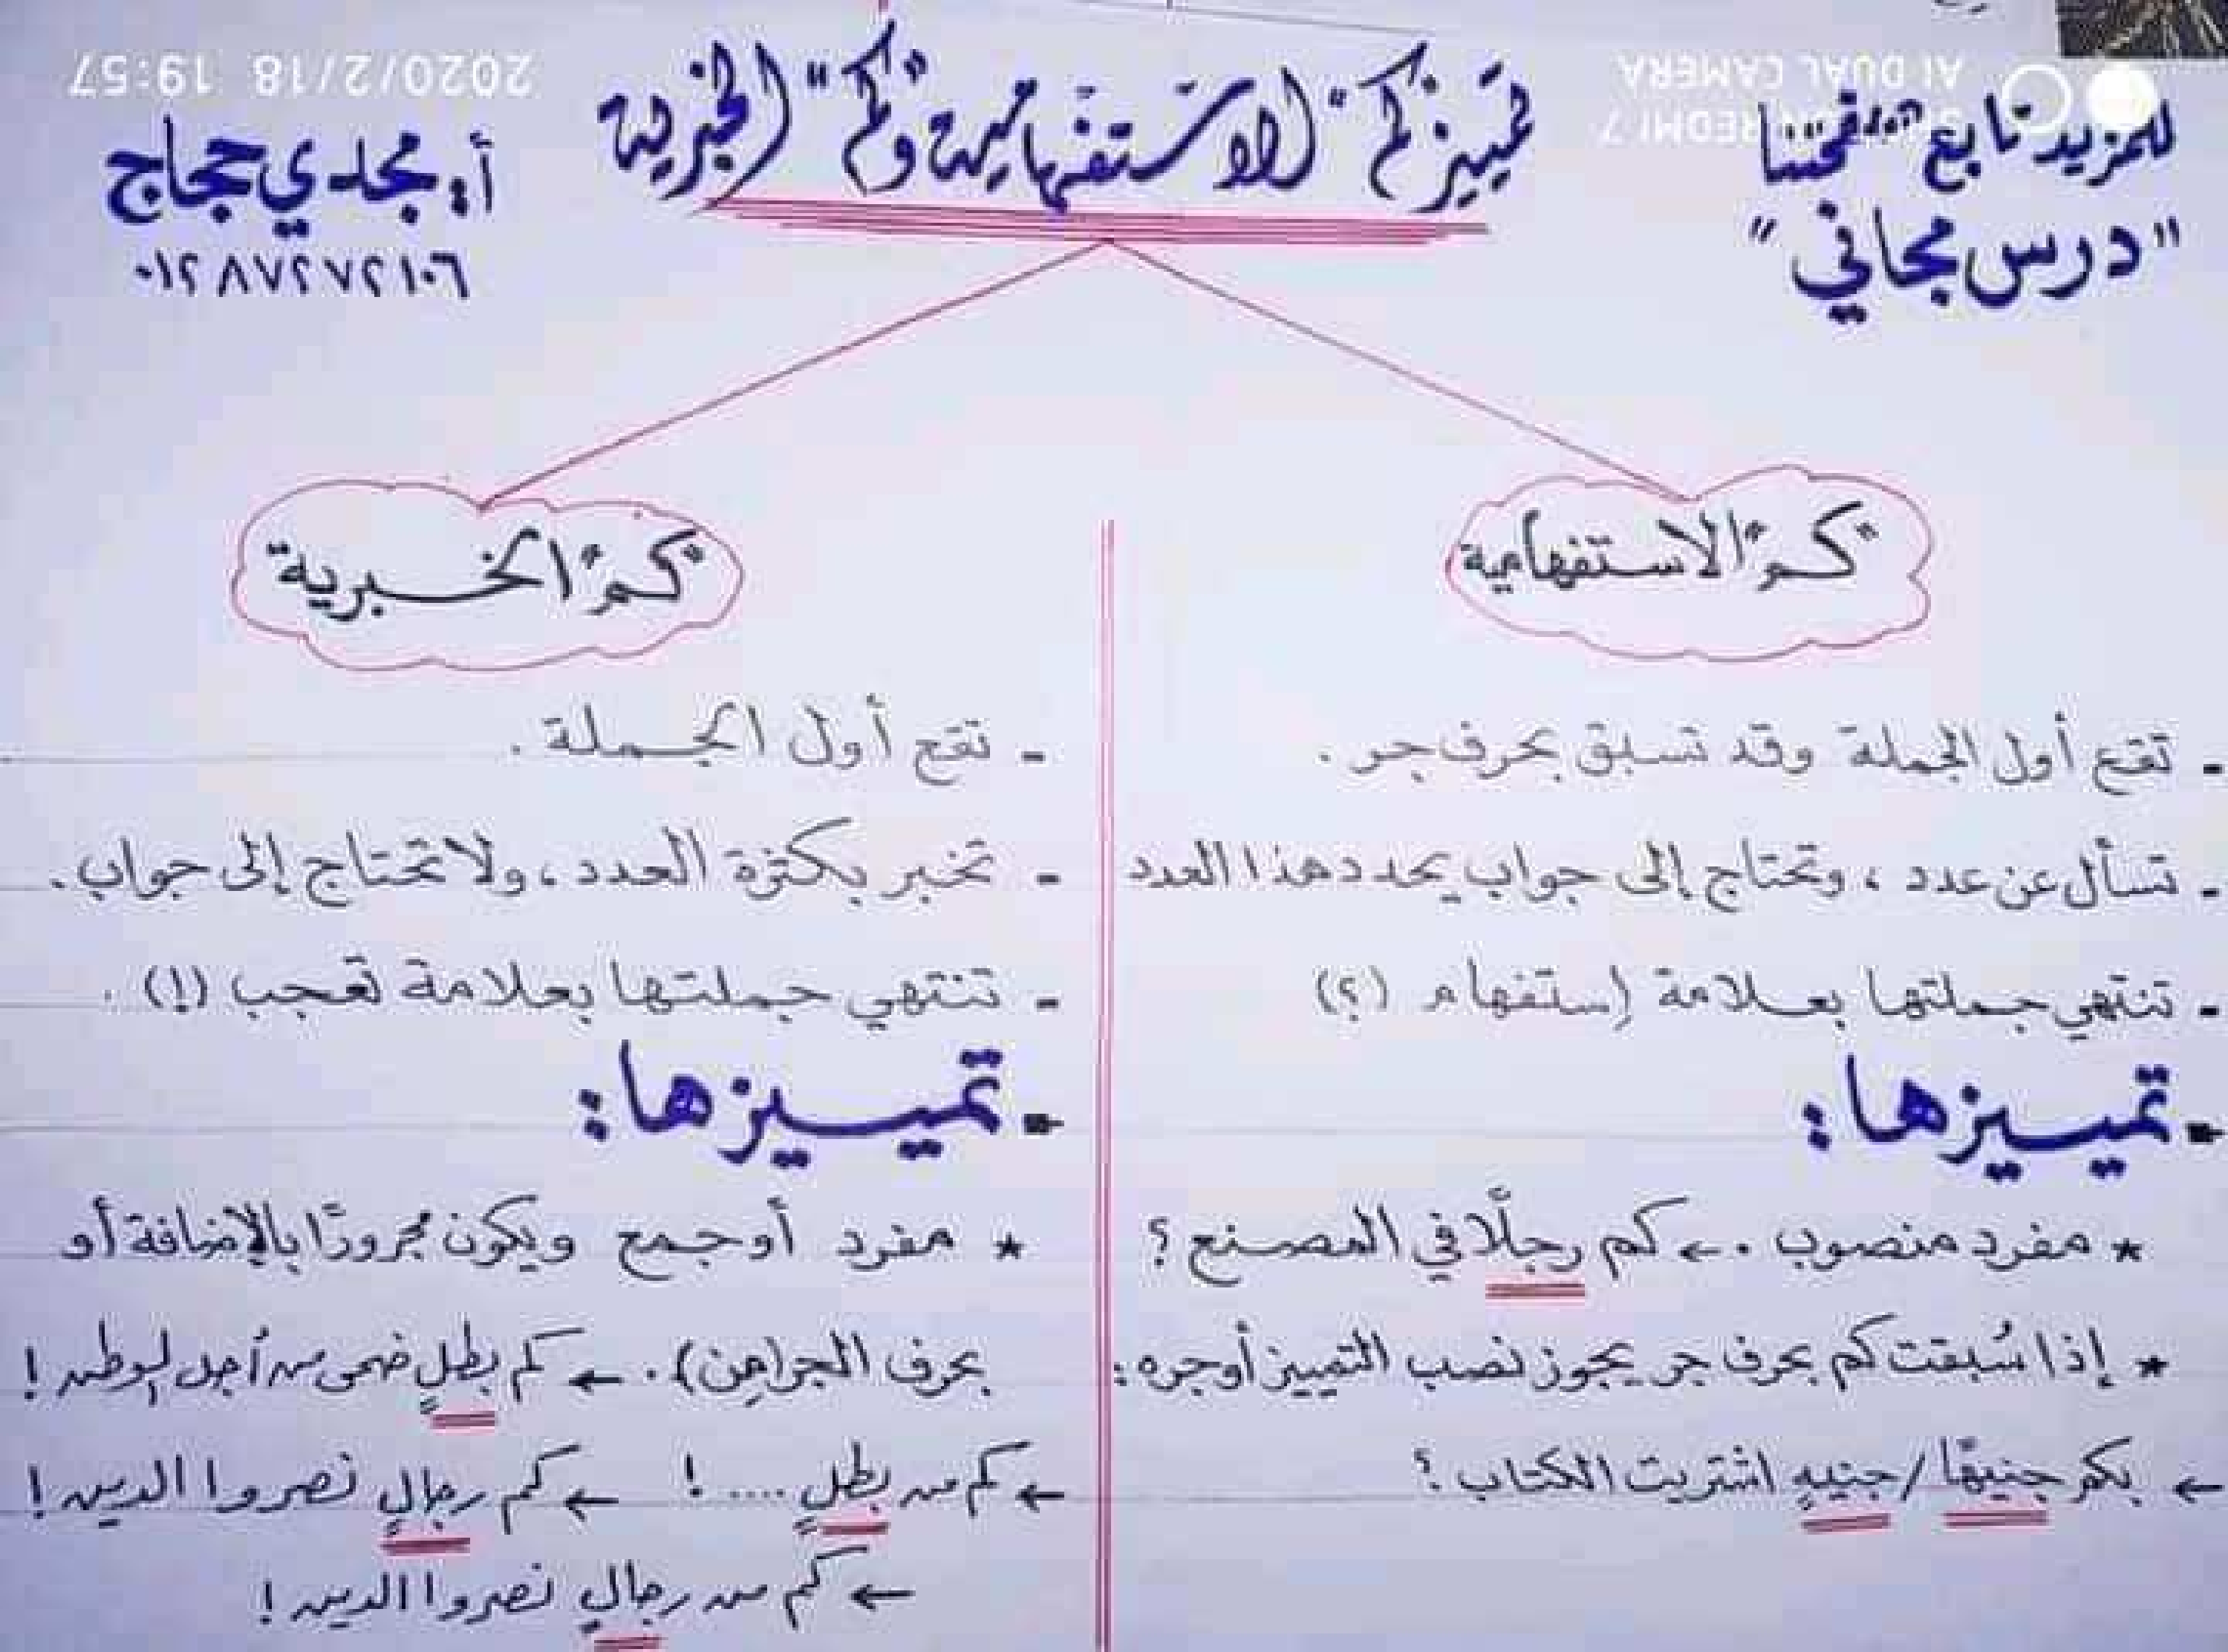 للمزيد تابع صفحتنا
"درس مجاني"
تمييز "كم" الاستفهامية و"كم" الخبرية
أ: مجدي حجاج
٠١٢٨٧٢٧٢١٠٦
2020/2/18 19:57
REDMI 7
AI DUAL CAMERA
"كم" الاستفهامية
- تقع أول الجملة وقد تسبق بحرف جر.
- تسأل عن عدد ، وتحتاج إلى جواب يحدد هذا العدد
- تنتهي جملتها بعلامة إستفهام (؟)
- تمييزها:
* مفرد منصوب . ← كم رجلًا في المصنع ؟
* إذا سُبقت كم بحرف جر يجوز نصب التمييز أو جره:
← بكم جنيهًا / جنيهٍ اشتريت الكتاب ؟
"كم" الخبرية
- تقع أول الجملة.
- تخبر بكثرة العدد، ولا تحتاج إلى جواب.
- تنتهي جملتها بعلامة تعجب (!) .
- تمييزها:
* مفرد أو جمع ويكون مجرورًا بالإضافة أو
بحرف الجر (مِن). ← كم بطلٍ ضحى من أجل الوطن !
← كم من بطلٍ .... ! ← كم رجالٍ نصروا الدين !
← كم من رجالٍ نصروا الدين !